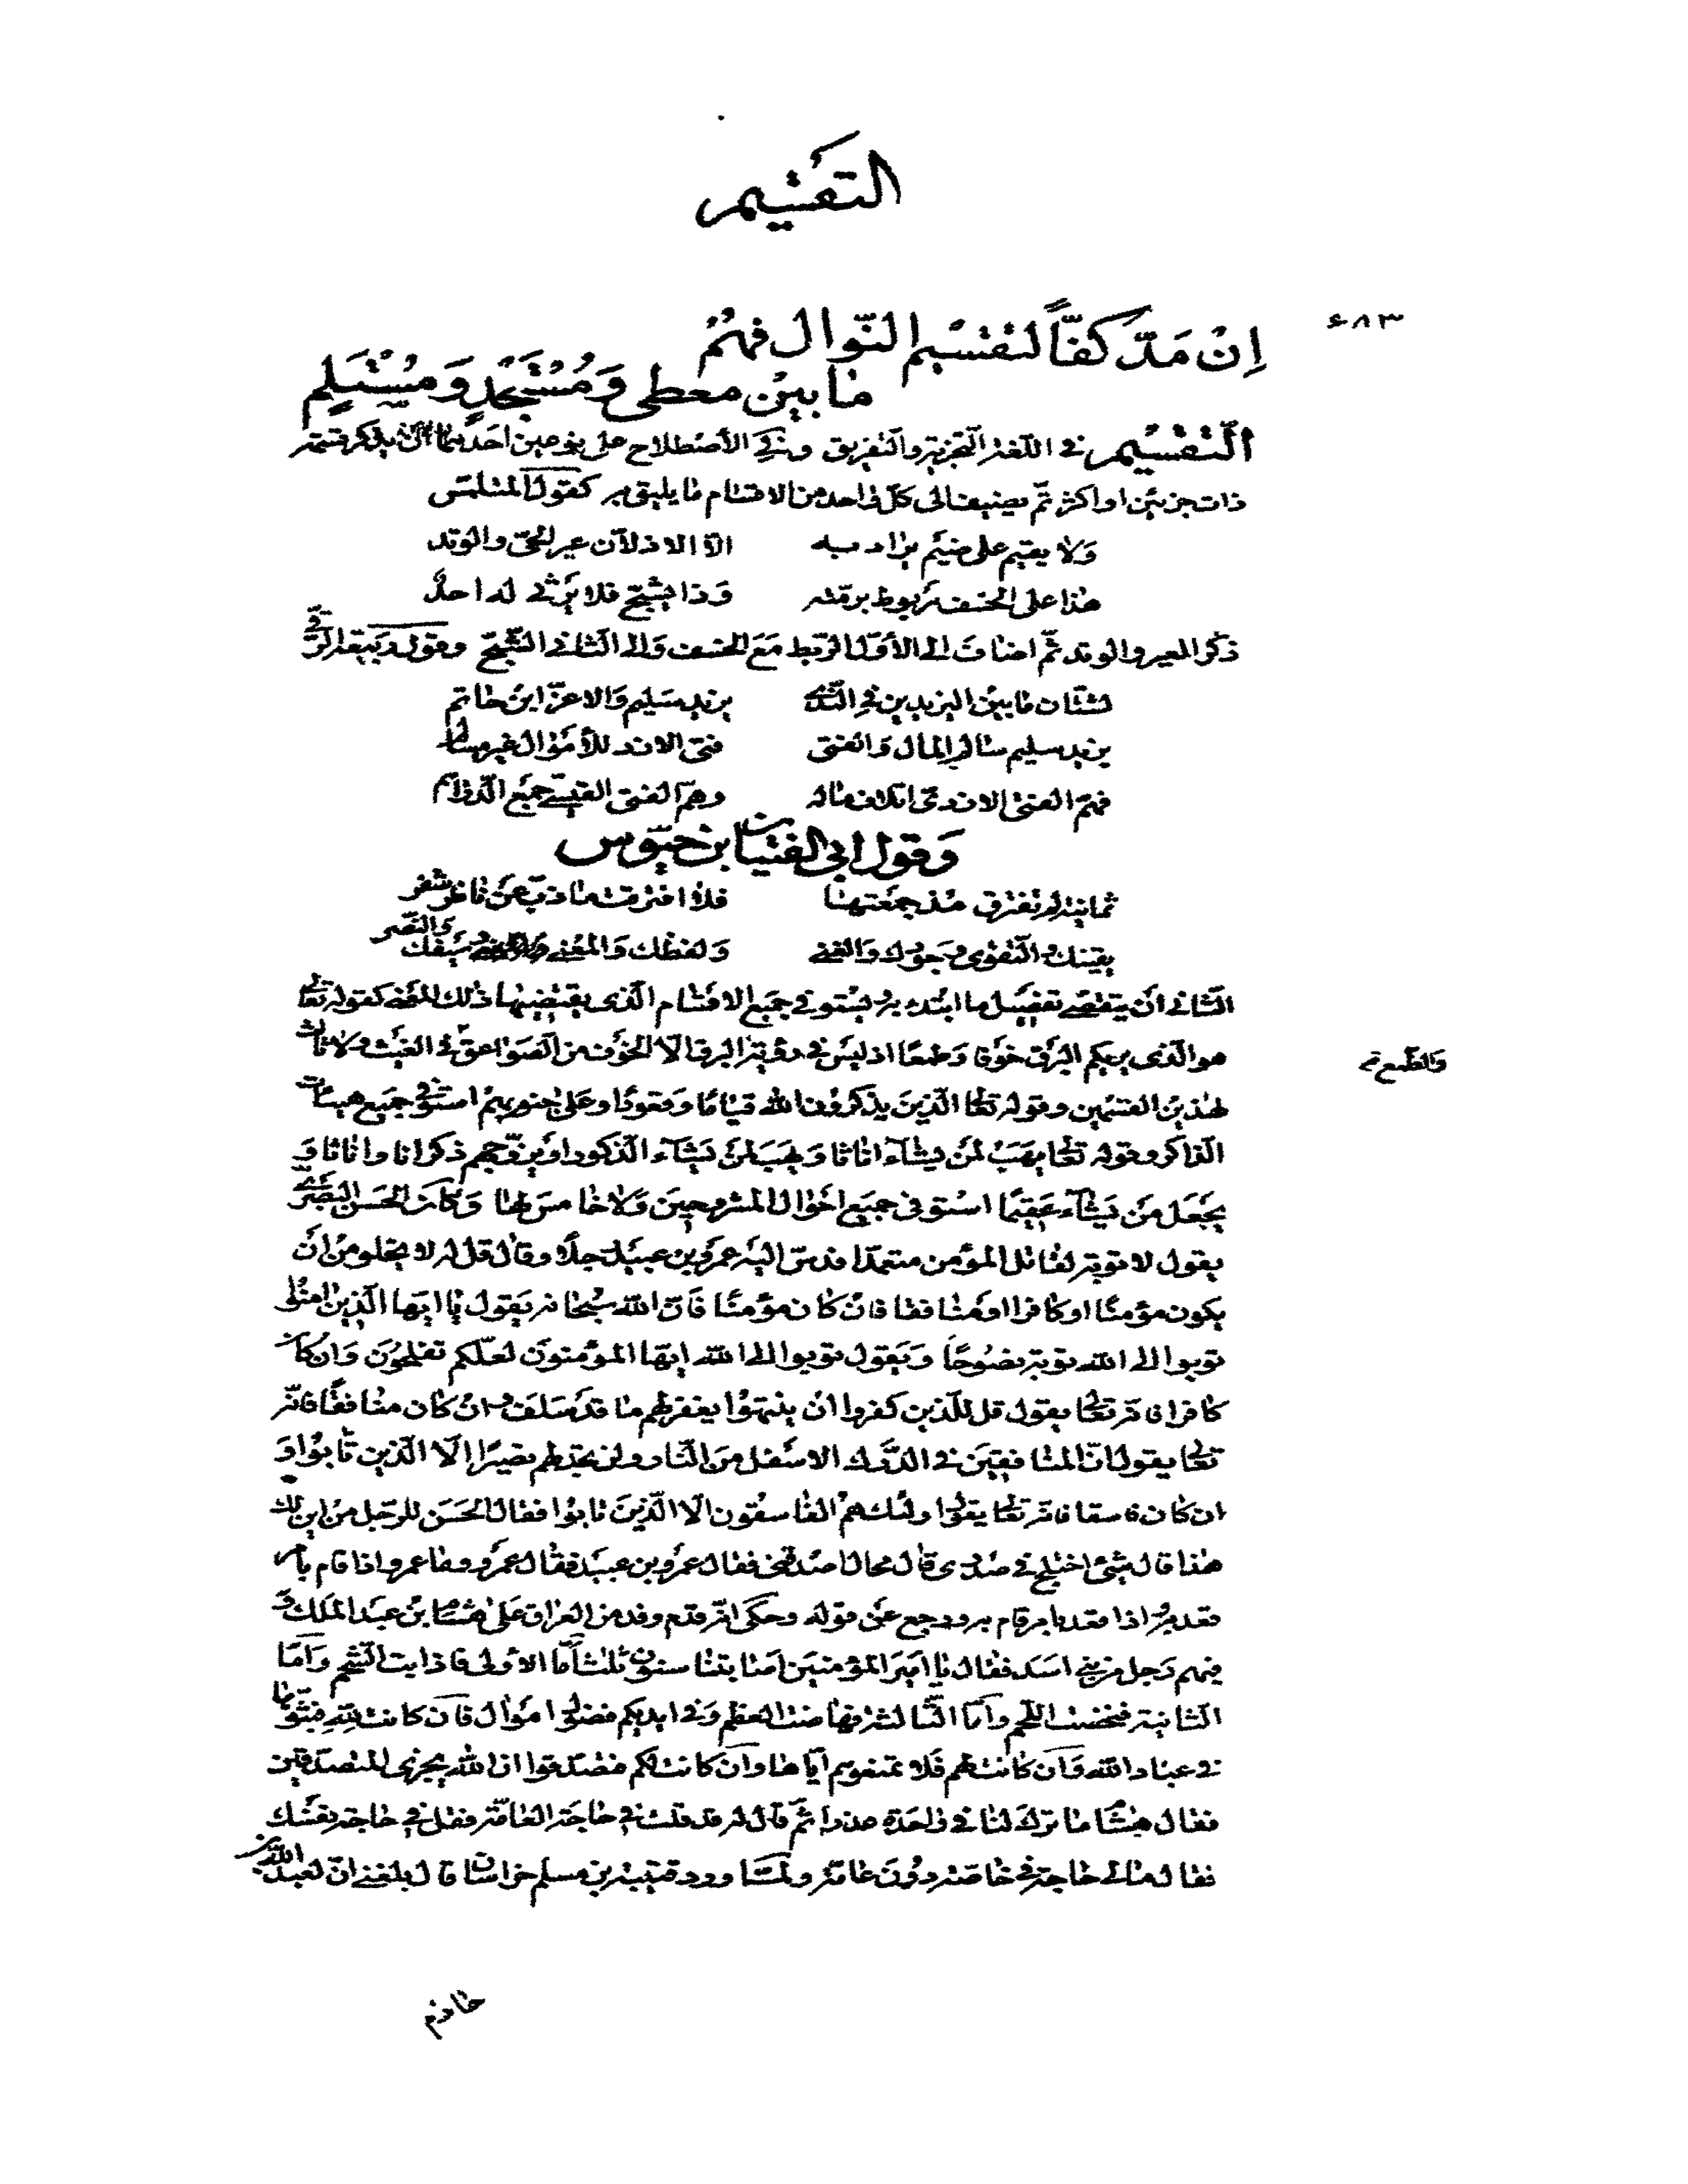 التقسيم
٤٨٣
اِنْ مَدَّ كفّاً لتقسيم النّوال فهُمْ
ما بين معطى وَمُسْتَجْدٍ وَمُسْتَلِمِ
التّقْسيم في اللّغة التّجزية والتّفريق وفي الأصطلاح على نوعين احَدهما أن يذكر قسمة
ذات جزئين او اكثر ثمّ يضيف الى كلّ واحد من الاقسام ما يليق به كقول المتلمّس
وَلا يقيم على ضيم يراد به الّا الاذلّان عير الحىّ والوتد
هذا على الخسف مربوط برمّته وَذا يشجّ فلا يرثى له احدٌ
ذكر العير والوتد ثمّ اضافَ الى الأوّل الرّبط مَعَ الخسف وَالى الثّانى الشّجّ وقول ربيعة الرّقّى
لشتّان ما بين اليزيدين في النّدى يزيد سليم وَالاغرّ ابن حاتم
يزيد سليم سالم المال وَالفتى فتى الازد للأمْوال غير مسالم
فهمّ الفتى الازدىّ اتلاف ماله وهمّ الفتى القيسىّ جمع الدّراهم
وَقول ابى الفتيان ابن حيّوس
ثمانية لم تفترق مذ جمَعتهَا فلا افترقت ما ذبّ عن ناظر شفر
يقينك والتّقوى وجودك وَالغنى وَلفظك وَالمعْنى وسَيفك وَالنّصر
الثّانى أن يتقصّى تفصيل ما ابتدء به ويستوفى جميع الاقسام الّذى يقتضيها ذلك المعنى كقوله تعَالى
هو الّذى يريكم البَرْق خوْفا وَطمعًا اذ ليسَ في رؤية البرق الّا الخوْف من الصّواعق في الغيث ولا ثالث
وَالطّمع
لهذين القسمين وقوله تعالى الّذينَ يذكرُونَ الله قيامًا وَقعودًا وعَلى جنوبهمْ استوفى جميع هيئات
الذّاكر وقوله تعالى يهَبُ لمَنْ يشآء اناثا وَيهَبَ لمَنْ يَشآء الذّكور اوْ يزوّجهم ذكرانا واناثا وَ
يجْعَل مَنْ يَشآء عَقيمًا استوفى جميع احْوال المتزوجينَ وَلا خامسَ لها وَكانَ الحَسَن البَصْرىّ
يقول لا توبة لقاتل المؤمن متعمّدا فدسّ اليْه عمرو بن عبيد رجلًا وقال قل له لا يخلو من انْ
يكون مؤمنًا او كافرا اوْ منافقا فانْ كان مؤمنًا فَانّ الله سُبْحانه يَقول يا ايّها الّذين امنُوا
توبوا الى الله توبة نصُوحًا وَيَقول توبوا الى الله ايّها المؤمنونَ لعَلّكم تفلحُونَ وَان كان
كافرا فانّه تعالى يقول قل للّذين كفروا ان ينتهوْا يغفر لهم ما قد سَلفَ وانْ كان منافقًا فانّه
تعالى يقول انّ المنافقينَ في الدّرك الاسْفل منَ النّار ولن تجد لهم نصيرًا الّا الّذين تابوْا وَ
ان كان فاسقا فانّه تعالى يقول اولئك همُ الفاسقون الّا الّذينَ تابوْا فقال الحَسَن للرّجل منْ اين لك
هذا قال شئ اختلج في صدرى قال محال اصدقنى فقال عمرو بن عبيد فقال عمرو وما عمرو اذا قام بامر
قعد به واذا قعد بامر قام به ورجع عن قوله وحكى انّه قدم وفد من العراق عَلى هشام بنْ عبد الملك وَ
فيهم رَجل من بنى اسَد فقال يا امِيرَ المؤمنينَ اصَابتنا سنون ثلث امّا الأولى فاذابت الشّحم وَامّا
الثّانية فنحَضت اللّحم وامّا الثّالثة فهاضت العظم وَفي ايديكم فضول امْوال فان كانت لله فبثّوها
في عباد الله وَان كانت لهم فَلا تمنعوهم ايّاها وان كانت لكم فتصدّقوا انّ الله يجزى المتصدّقين
فقال هشام ما ترك لنا في واحدة عذرا ثمّ قال له قد قلت في حاجة العامّة فقل في حاجة نفسْك
فقال مالى حاجة في خاصّة دُونَ عامّة ولمّا ورد قتيبة بن مسلم خراسان قال بلغنى انّ لعبد الله بن
خازم